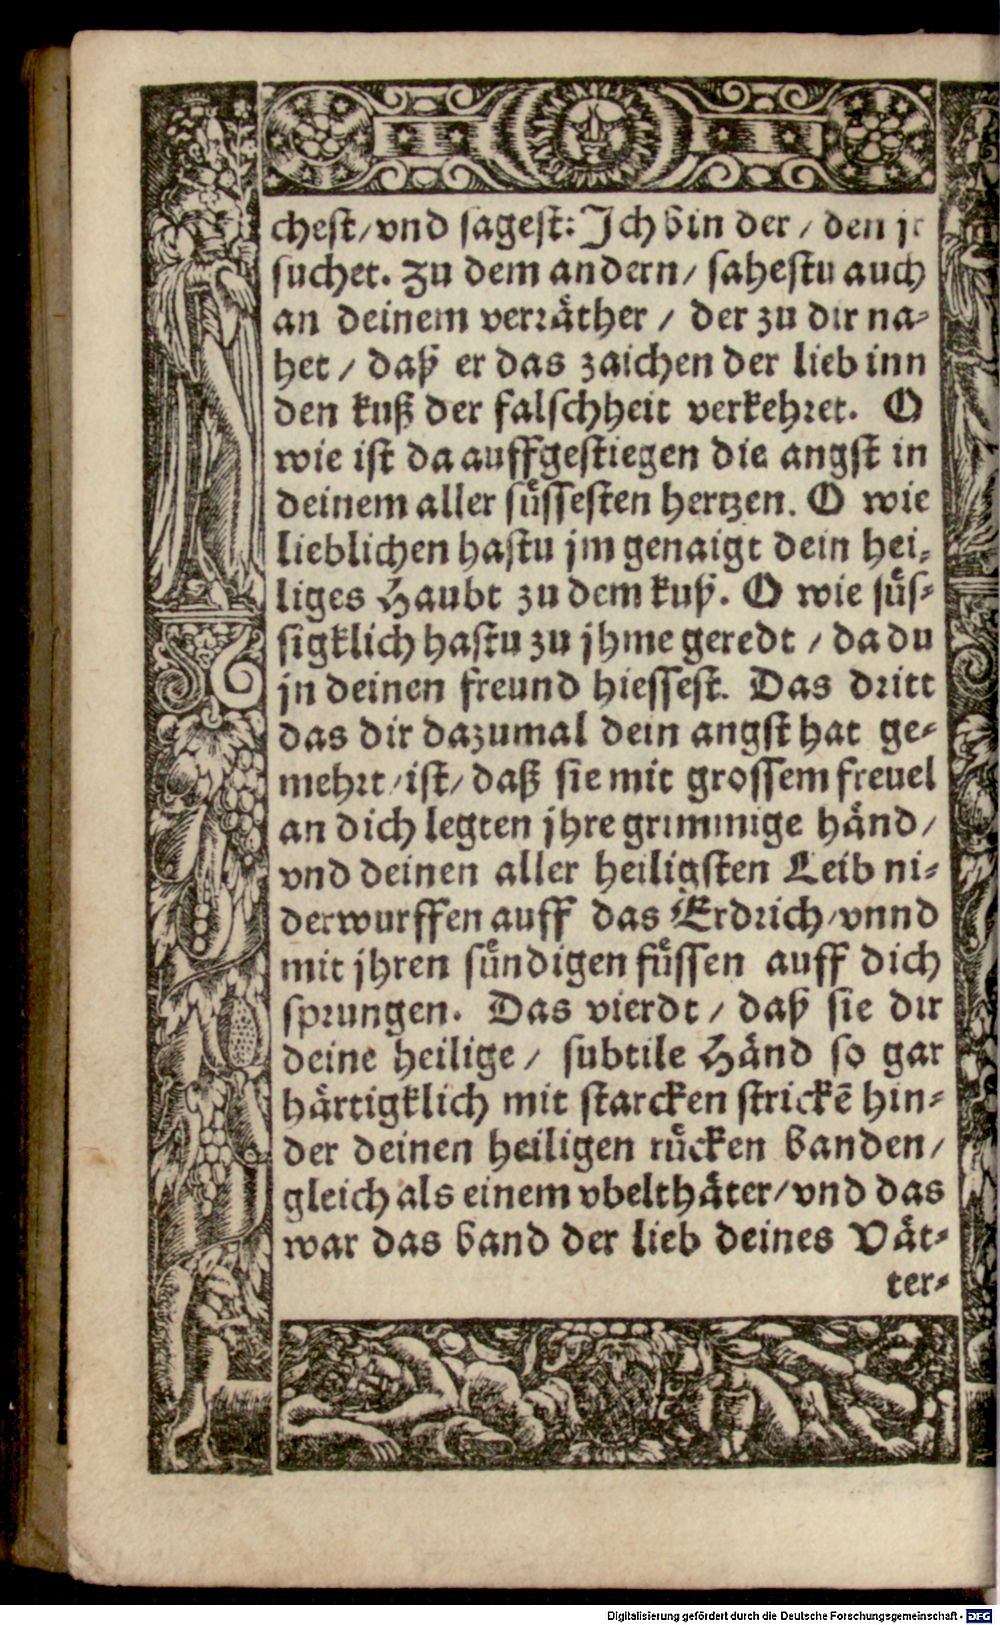 chest/vnd sagest: Ich bin der / den jr
suchet. Zu dem andern/ sahestu auch
an deinem verräther / der zu dir na-
het / daß er das zaichen der lieb inn
den kuß der falschheit verkehret. O
wie ist da auffgestiegen die angst in
deinem aller süssesten hertzen. O wie
lieblichen hastu jm genaigt dein hei-
liges Haubt zu dem kuß. O wie süs-
sigklich hastu zu jhme geredt / da du
jn deinen freund hiessest. Das dritt
das dir dazumal dein angst hat ge-
mehrt/ist/ daß sie mit grossem frevel
an dich legten jhre grimmige händ/
vnd deinen aller heiligsten Leib ni-
derwurffen auff das Erdrich/vnnd
mit jhren sündigen füssen auff dich
sprungen. Das vierdt / daß sie dir
deine heilige / subtile Händ so gar
härtigklich mit starcken strickē hin-
der deinen heiligen rücken banden/
gleich als einem vbelthäter/vnd das
war das band der lieb deines Vät-
ter-
Digitalisierung gefördert durch die Deutsche Forschungsgemeinschaft - DFG